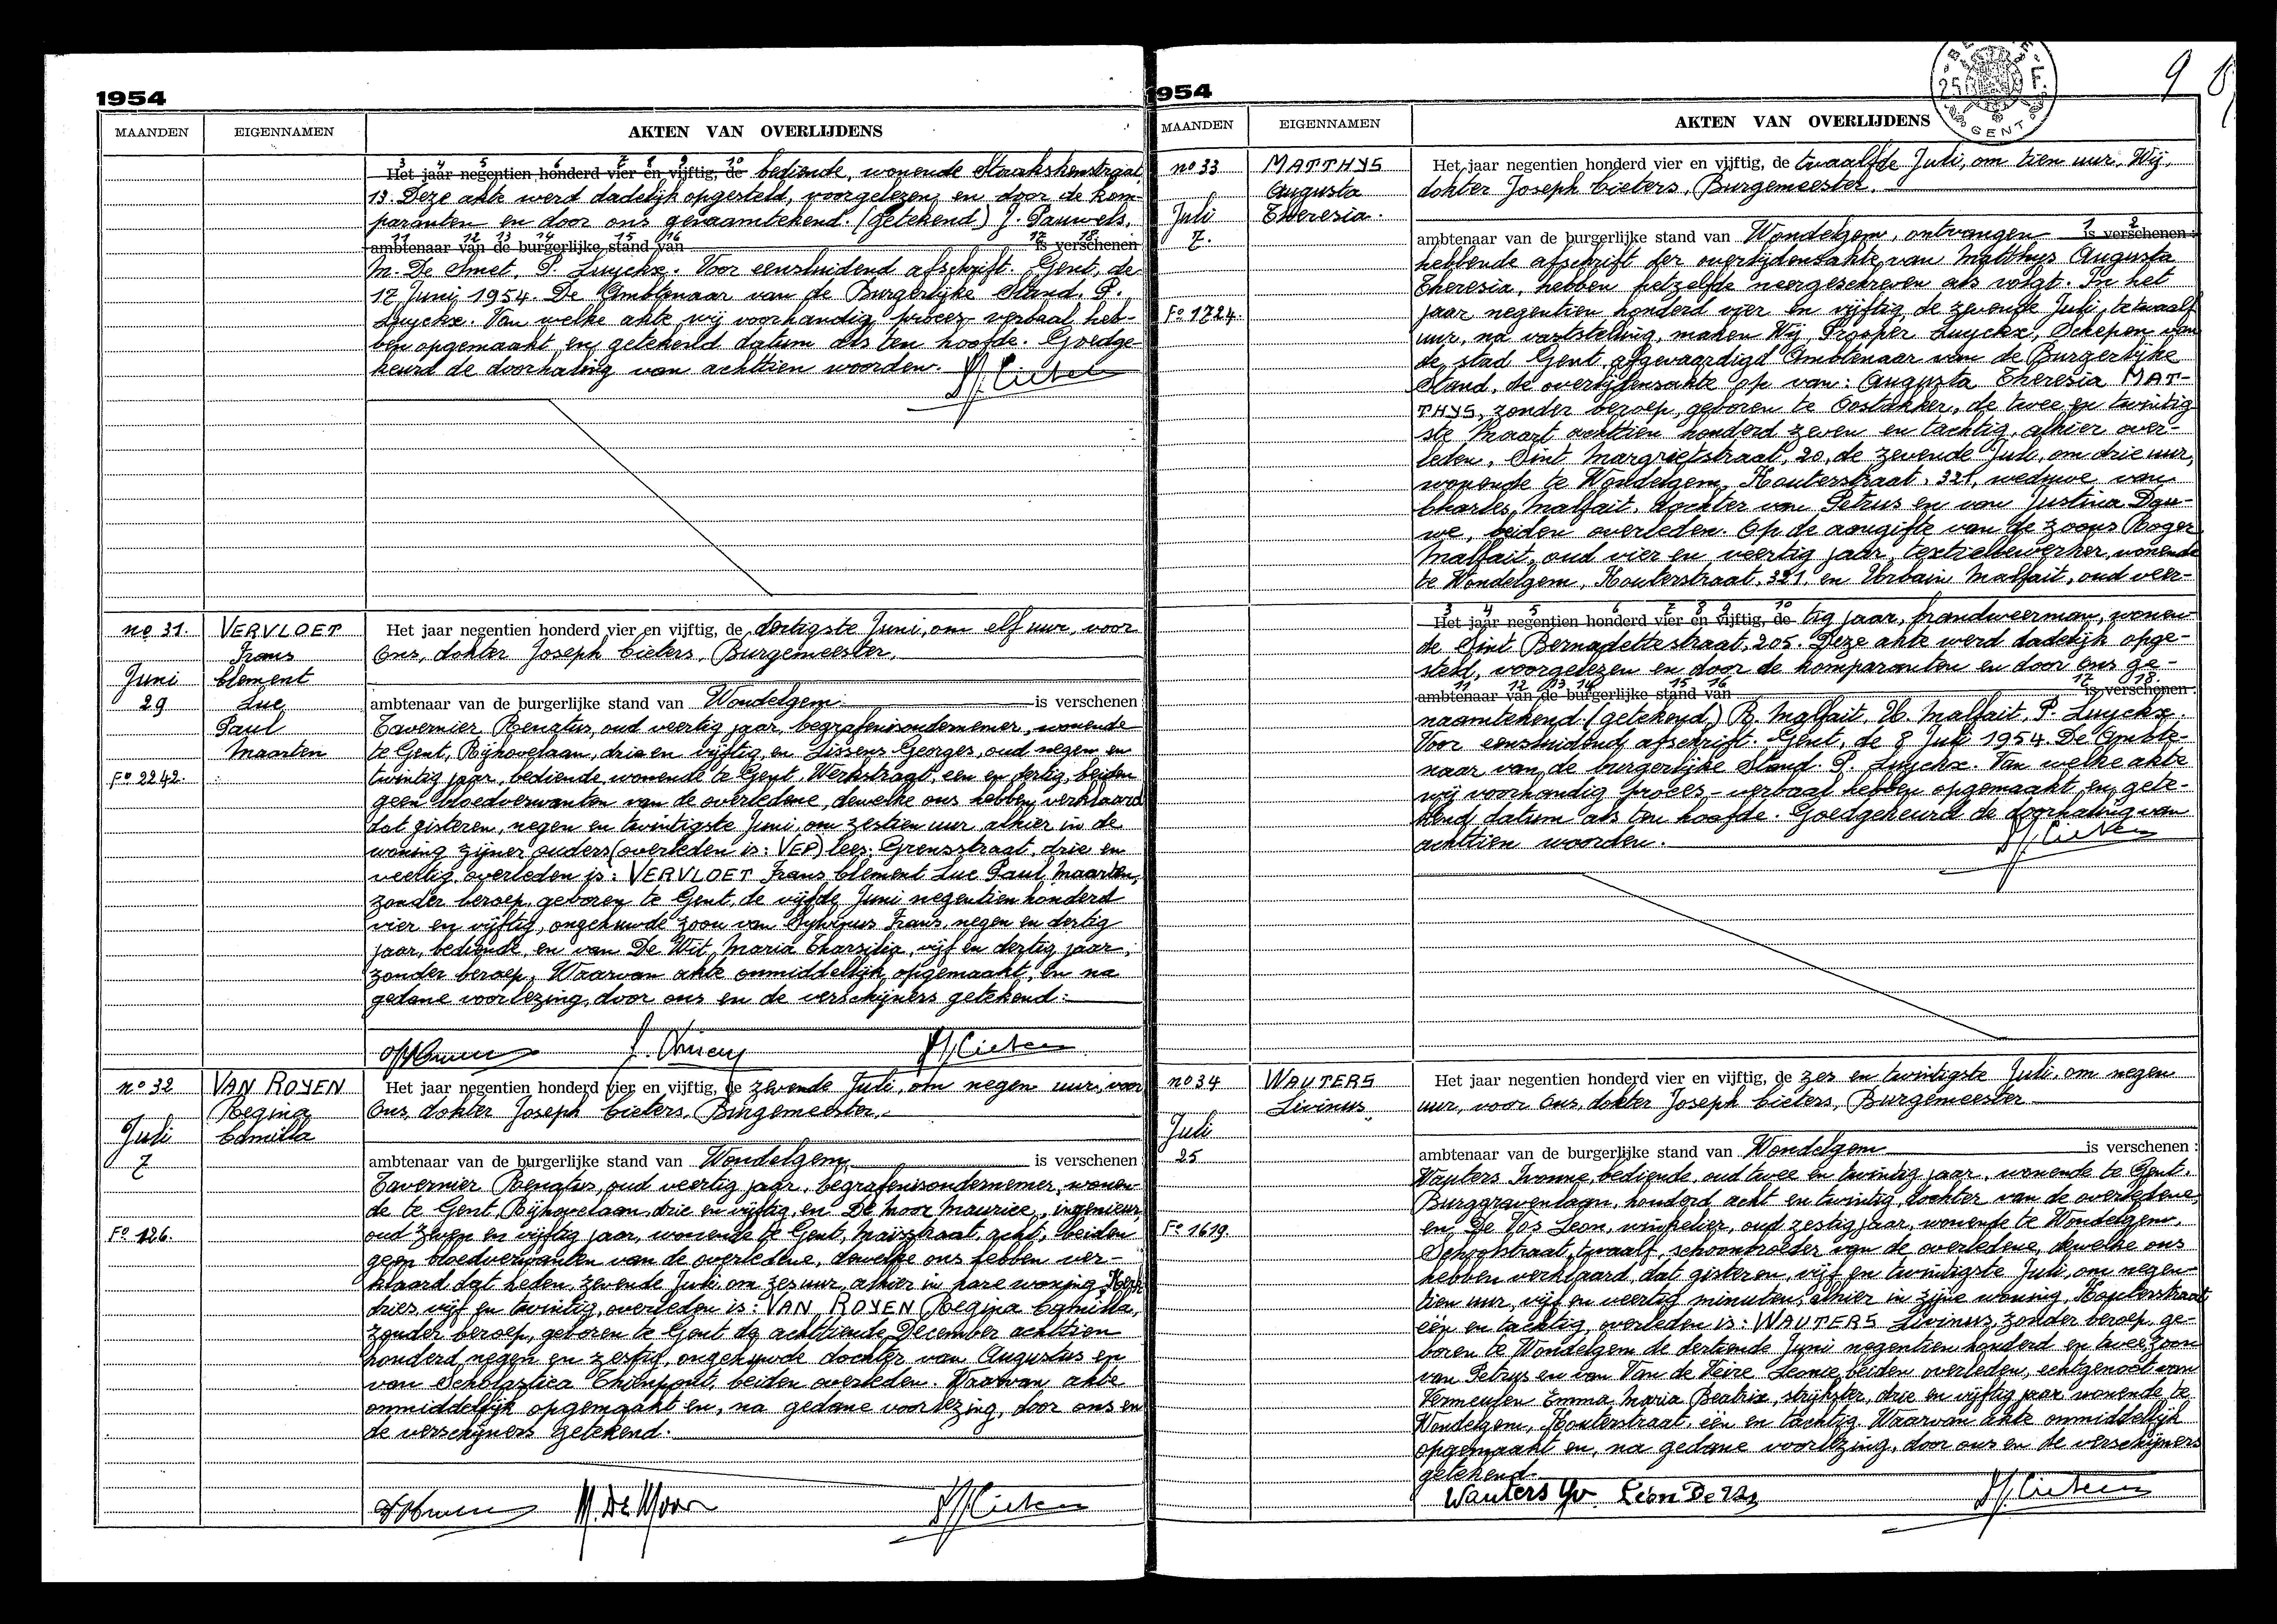 1954
MAANDEN EIGENNAMEN AKTEN VAN OVERLIJDENS
3 4 5 6 7 8 9 10
Het jaar negentien honderd vier en vijftig, de bediende, wonende
13. Deze akte werd dadelijk opgesteld, voorgelezen en door de kom-
paranten en door ons genaamtekend. (getekend) J. Pauwels.
11 12 13 14 15 16 17 18
ambtenaar van de burgerlijke stand van is verschenen
M. De Smet, P. Luyckx. Voor eensluidend afschrift. Gent, de
17 Juni 1954. De Ambtenaar van de Burgerlijke Stand. P.
Luyckx. Van welke akte wij voorhandig proces verbaal heb-
ben opgemaakt en getekend datum als ten hoofde. Goedge-
keurd de doorhaling van achttien woorden.
no 31. VERVLOET Het jaar negentien honderd vier en vijftig, de dertigste Juni, om elf uur, voor
Frans Ons, dokter Joseph Cieters, Burgemeester.
Juni Clement
29 Luc ambtenaar van de burgerlijke stand van Wondelgem is verschenen
Paul Tavernier Renatus, oud veertig jaar, begrafenisondernemer, wonende
Maarten te Gent, Rijhovelaan, drie en vijftig, en Lissens Georges, oud negen en
Fo 2242. twintig jaar, bediende, wonende te Gent, Werkstraat, een en dertig, beiden
geen bloedverwanten van de overledene, dewelke ons hebben verklaard
dat gisteren, negen en twintigste Juni, om zestien uur alhier in de
woning zijner ouders (overleden is: VER) lees: Grensstraat, drie en
veertig, overleden is: VERVLOET Frans Clement Luc Paul Maarten,
zonder beroep, geboren te Gent, de vijfde Juni negentien honderd
vier en vijftig, ongehuwde zoon van Frans, negen en dertig
jaar, bediende, en van De Wit, Maria Tharsilia, vijf en dertig jaar,
zonder beroep. Waarvan akte onmiddellijk opgemaakt, en na
gedane voorlezing, door ons en de verschijners getekend:
no 32 VAN ROYEN Het jaar negentien honderd vier en vijftig, de zevende Juli, om negen uur, voor
Regina Ons, dokter Joseph Cieters, Burgemeester.
Juli Camilla
7 ambtenaar van de burgerlijke stand van Wondelgem is verschenen
Tavernier Renatus, oud veertig jaar, begrafenisondernemer, wonen-
de te Gent, Rijhovelaan, drie en vijftig, en De Moor Maurice, ingenieur,
Fo 126. oud zeven en vijftig jaar, wonende te Gent, Maïsstraat, acht, beiden
geen bloedverwanten van de overledene, dewelke ons hebben ver-
klaard dat heden, zevende Juli, om zes uur, alhier in hare woning,
dries vijf en twintig, overleden is: VAN ROYEN Regina Camilla,
zonder beroep, geboren te Gent de achttiende December achttien
honderd negen en zestig, ongehuwde dochter van Augustus en
van Scholastica beiden overleden. Waarvan akte
onmiddellijk opgemaakt en, na gedane voorlezing, door ons en
de verschijners getekend.
M. De Moor
1954
BELGIE 25 F. GENT
9
MAANDEN EIGENNAMEN AKTEN VAN OVERLIJDENS
no 33 MATTHYS Het jaar negentien honderd vier en vijftig, de twaalfde Juli, om tien uur, Wij,
Augusta dokter Joseph Cieters, Burgemeester.
Juli Theresia.
7. ambtenaar van de burgerlijke stand van Wondelgem, ontvangen 1 2 is verschenen:
hebbende afschrift der overlijdensakte van Matthys Augusta
Theresia, hebben hetzelfde neergeschreven als volgt. In het
Fo 1724. jaar negentien honderd vier en vijftig, de zevende Juli, te twaalf
uur, na vaststelling, maken Wij, Prosper Luyckx, Schepen van
de stad Gent, afgevaardigd Ambtenaar van de Burgerlijke
Stand, de overlijdensakte op van: Augusta Theresia MAT-
THYS, zonder beroep, geboren te Oostakker, de twee en twintig-
ste Maart achttien honderd zeven en tachtig, alhier over-
leden, Sint Margrietstraat, 20, de zevende Juli, om drie uur,
wonende te Wondelgem, Kouterstraat, 321, weduwe van
Charles Malfait, dochter van Petrus en van Justina Dau-
we, beiden overleden. Op de aangifte van de zoons Roger
Malfait, oud vier en veertig jaar, textielbewerker, wonende
te Wondelgem, Kouterstraat, 321. en Urbain Malfait, oud veer-
3 4 5 6 7 8 9 10
Het jaar negentien honderd vier en vijftig, de tig jaar, brandweerman, wonen-
de Sint Bernadettestraat, 205. Deze akte werd dadelijk opge-
steld, voorgelezen en door de komparanten en door ons ge-
11 12 13 14 15 16 17 18.
ambtenaar van de burgerlijke stand van is verschenen:
naamtekend. (getekend) R. Malfait, U. Malfait, P. Luyckx.
Voor eensluidend afschrift. Gent, de 8 Juli 1954. De Ambte-
naar van de burgerlijke Stand. P. Luyckx. Van welke akte
wij voorhandig proces-verbaal hebben opgemaakt en gete-
kend datum als ten hoofde. Goedgekeurd de doorhaling van
achttien woorden.
no 34 WAUTERS Het jaar negentien honderd vier en vijftig, de zes en twintigste Juli, om negen
Livinus uur, voor Ons, dokter Joseph Cieters, Burgemeester
Juli
25 ambtenaar van de burgerlijke stand van Wondelgem is verschenen:
Wauters Ivonne, bediende, oud twee en twintig jaar, wonende te Gent,
Burggravenlaan, honderd acht en twintig, dochter van de overledene,
Fo 1619. en De Vos Leon, winkelier, oud zestig jaar, wonende te Wondelgem,
Schoolstraat, twaalf, schoonbroeder van de overledene, dewelke ons
hebben verklaard, dat gisteren, vijf en twintigste Juli, om negen-
tien uur, vijf en veertig minuten, alhier in zijne woning, Kouterstraat,
één en tachtig, overleden is: WAUTERS Livinus, zonder beroep, ge-
boren te Wondelgem de dertiende Juni negentien honderd en twee, zoon
van Petrus en van Van de Veire Leonie, beiden overleden, echtgenoot van
Vermeulen Emma, Maria Beatrix, strijkster, drie en vijftig jaar wonende te
Wondelgem, Kouterstraat, één en tachtig. Waarvan akte onmiddellijk
opgemaakt en, na gedane voorlezing, door ons en de verschijners
getekend.
Wauters Yv. Léon De Vos